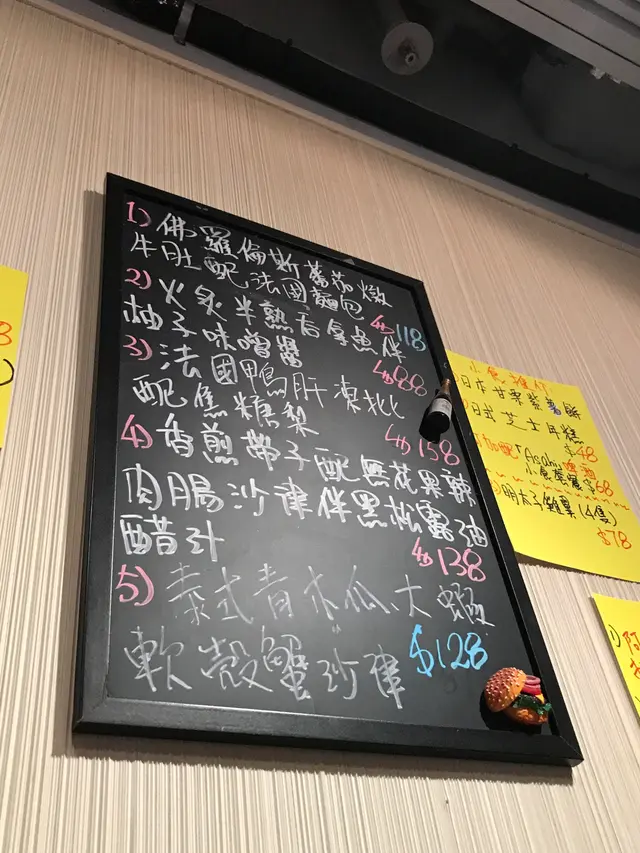 1) 佛羅倫斯蕃茄燉
牛肚配法國麵包
$118
2) 火炙半熟吞拿魚伴
柚子味噌醬
$88
3) 法國鴨肝凍批
配焦糖梨
$158
4) 香煎帶子配無花果辣
肉腸沙律伴黑松露油
醋汁
$138
5) 泰式青木瓜大蝦
軟殼蟹沙律 $128
小食推介
日式芝士年糕
$48
加配「Asahi啤酒
$68
明太子雞翼(4隻)
$78